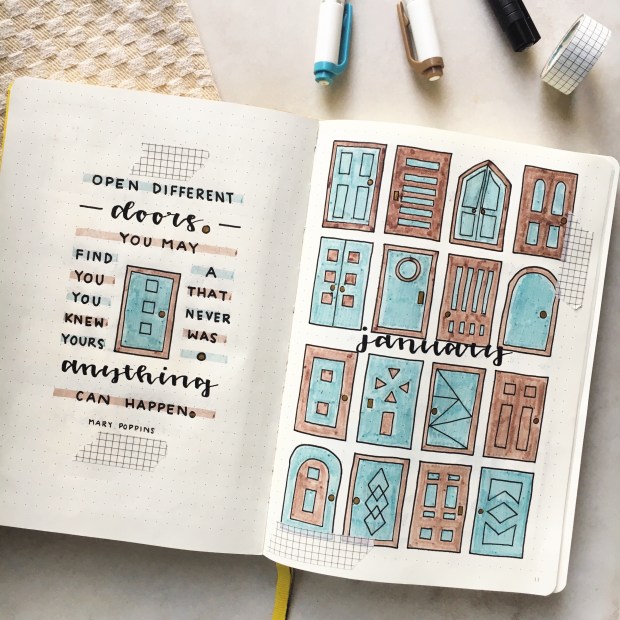 OPEN DIFFERENT
doors.
YOU MAY
FIND A
YOU THAT
YOU NEVER
KNEW WAS
YOURS.
anything
CAN HAPPEN.
MARY POPPINS
january
11